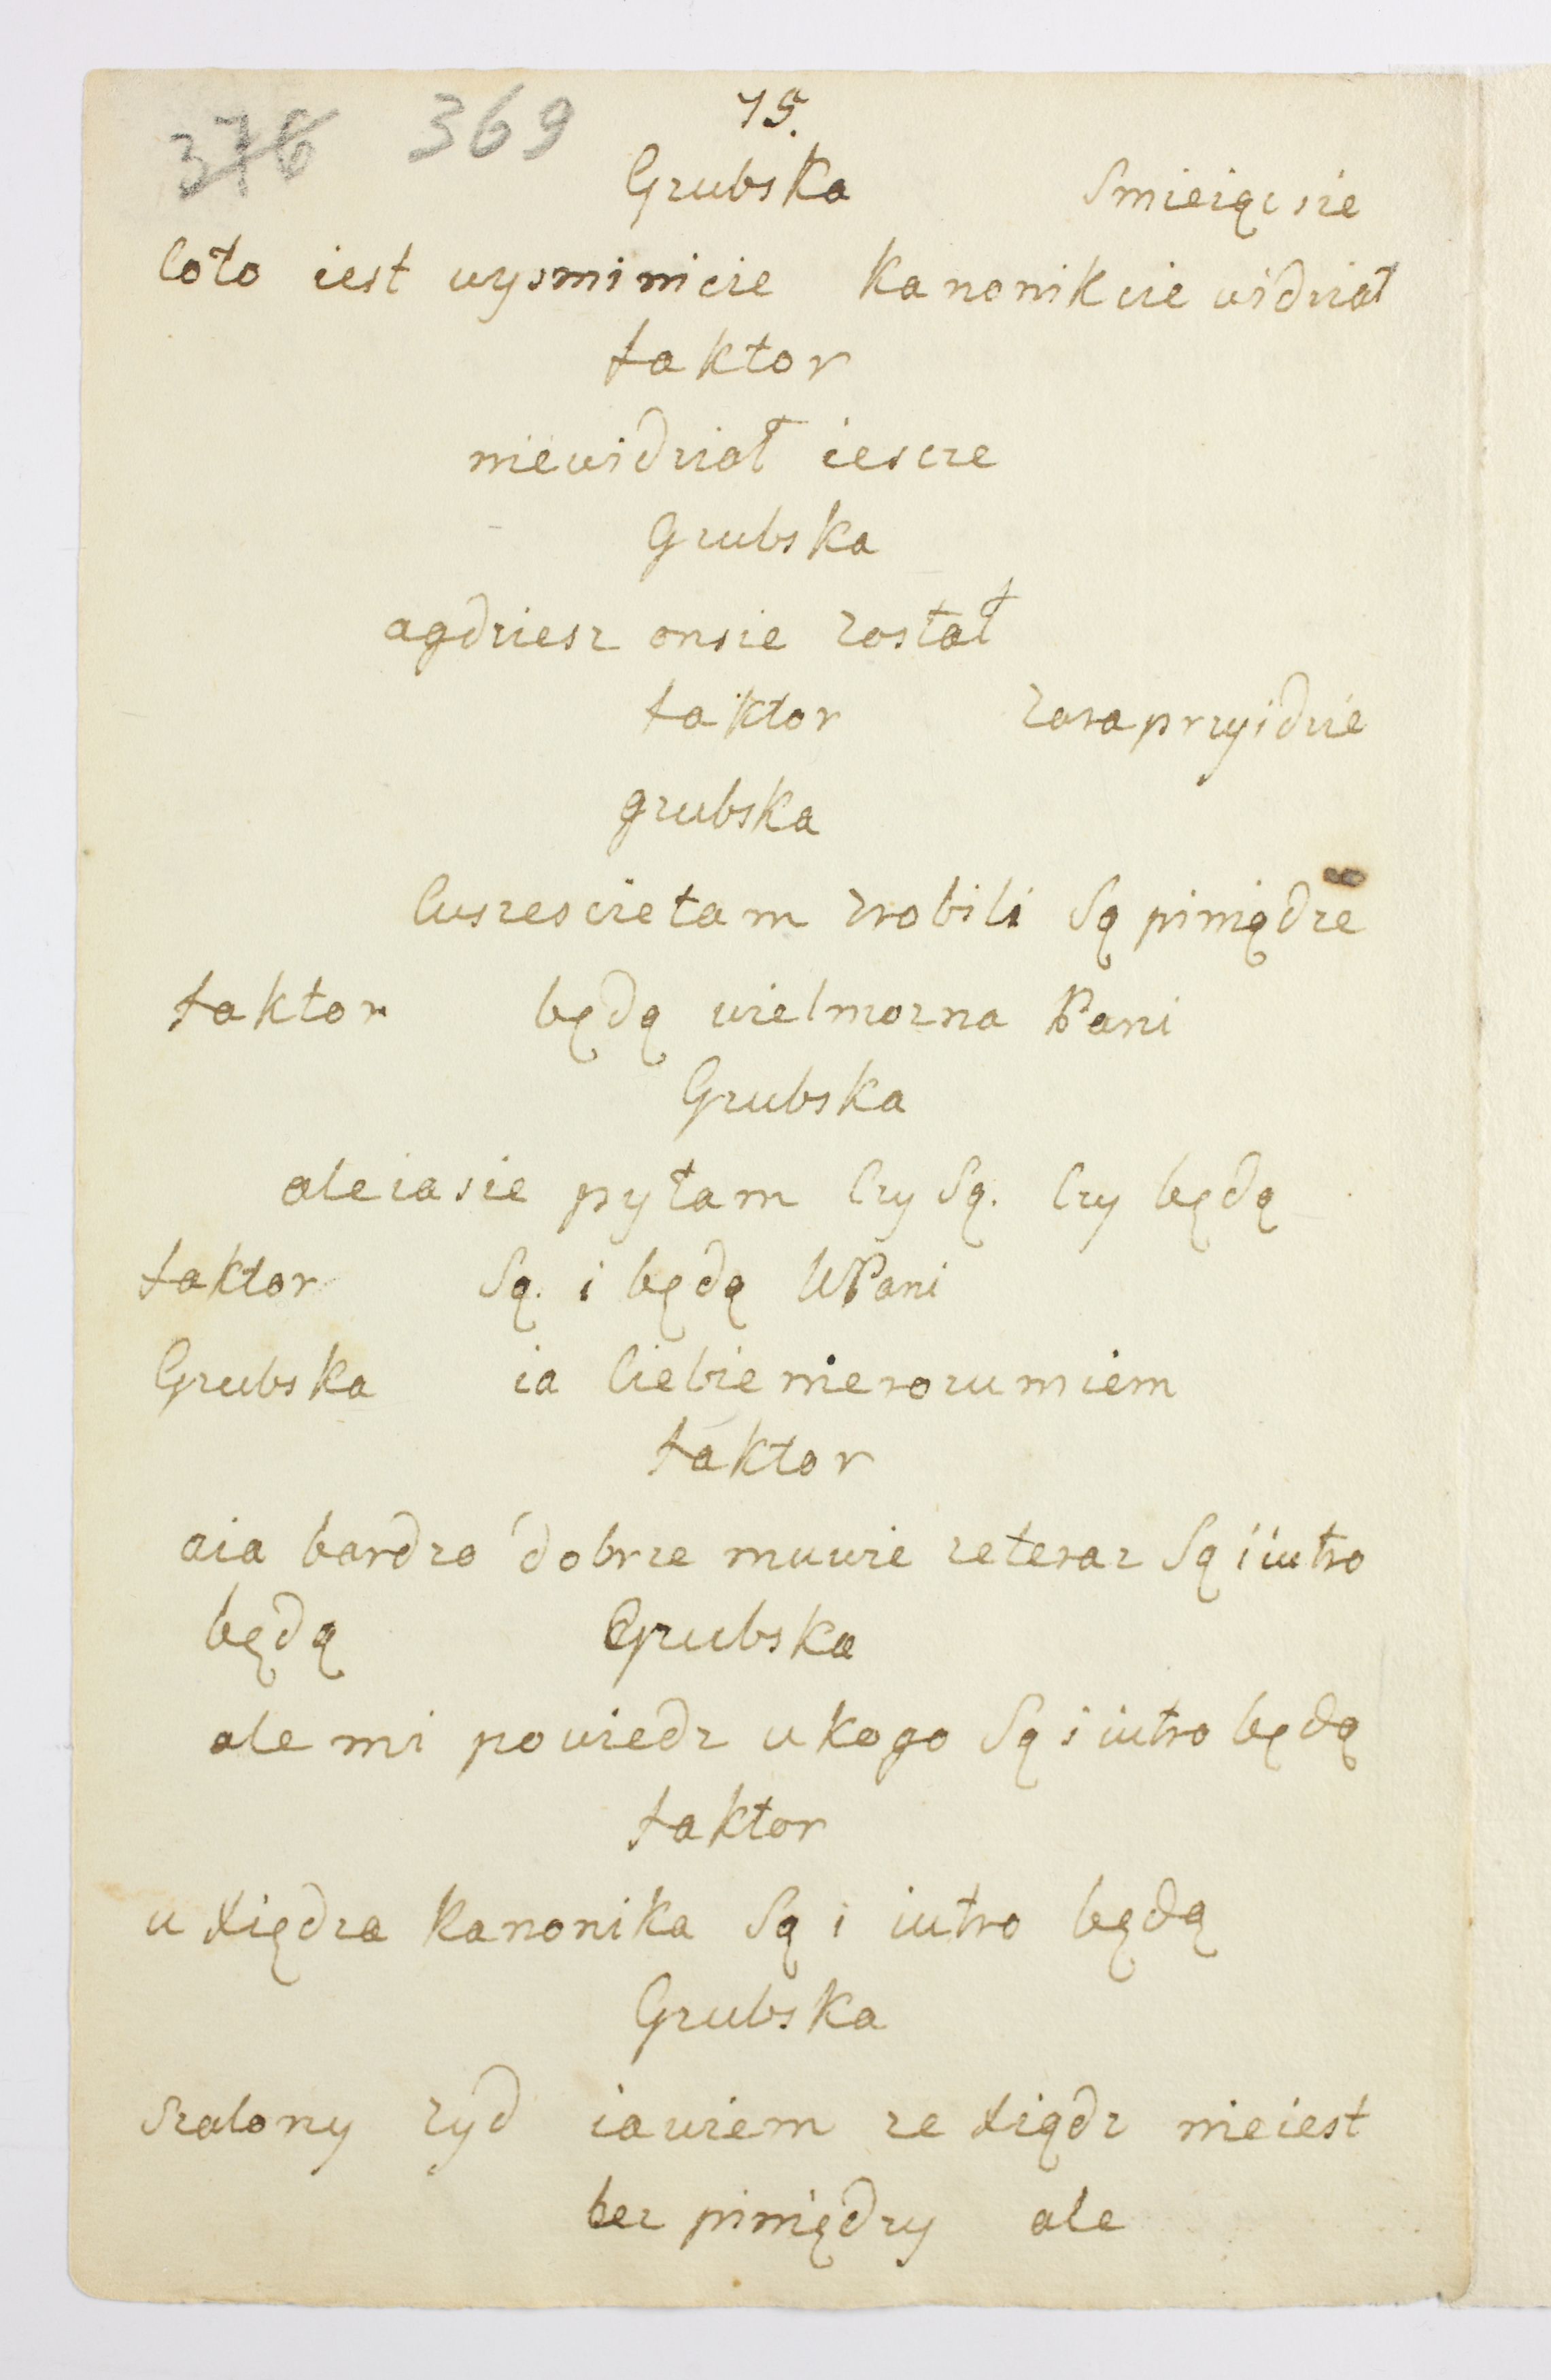 376 369 15.
Grubska Smieiąc sie
Coto iest wysminicie kanonik cie widział
faktor
niewidział iescze
Grubska
agdziesz onsie został
faktor zara przyidzie
grubska
Cuszescietam zrobili Są piniądze
faktor będą wielmozna Pani
Grubska
aleiasie pytam Czy Są. Czy będą
faktor Są. i będą WPani
Grubska ia Ciebie nierozumiem
faktor
aia bardzo dobrze muwie zeteraz Są i iutro
będą Grubska
ale mi powiedz u kogo Są i iutro będą
faktor
u xiędza kanonika Są i iutro będą
Grubska
szalony zyd iawiem ze xiądz nieiest
bez piniędzy ale